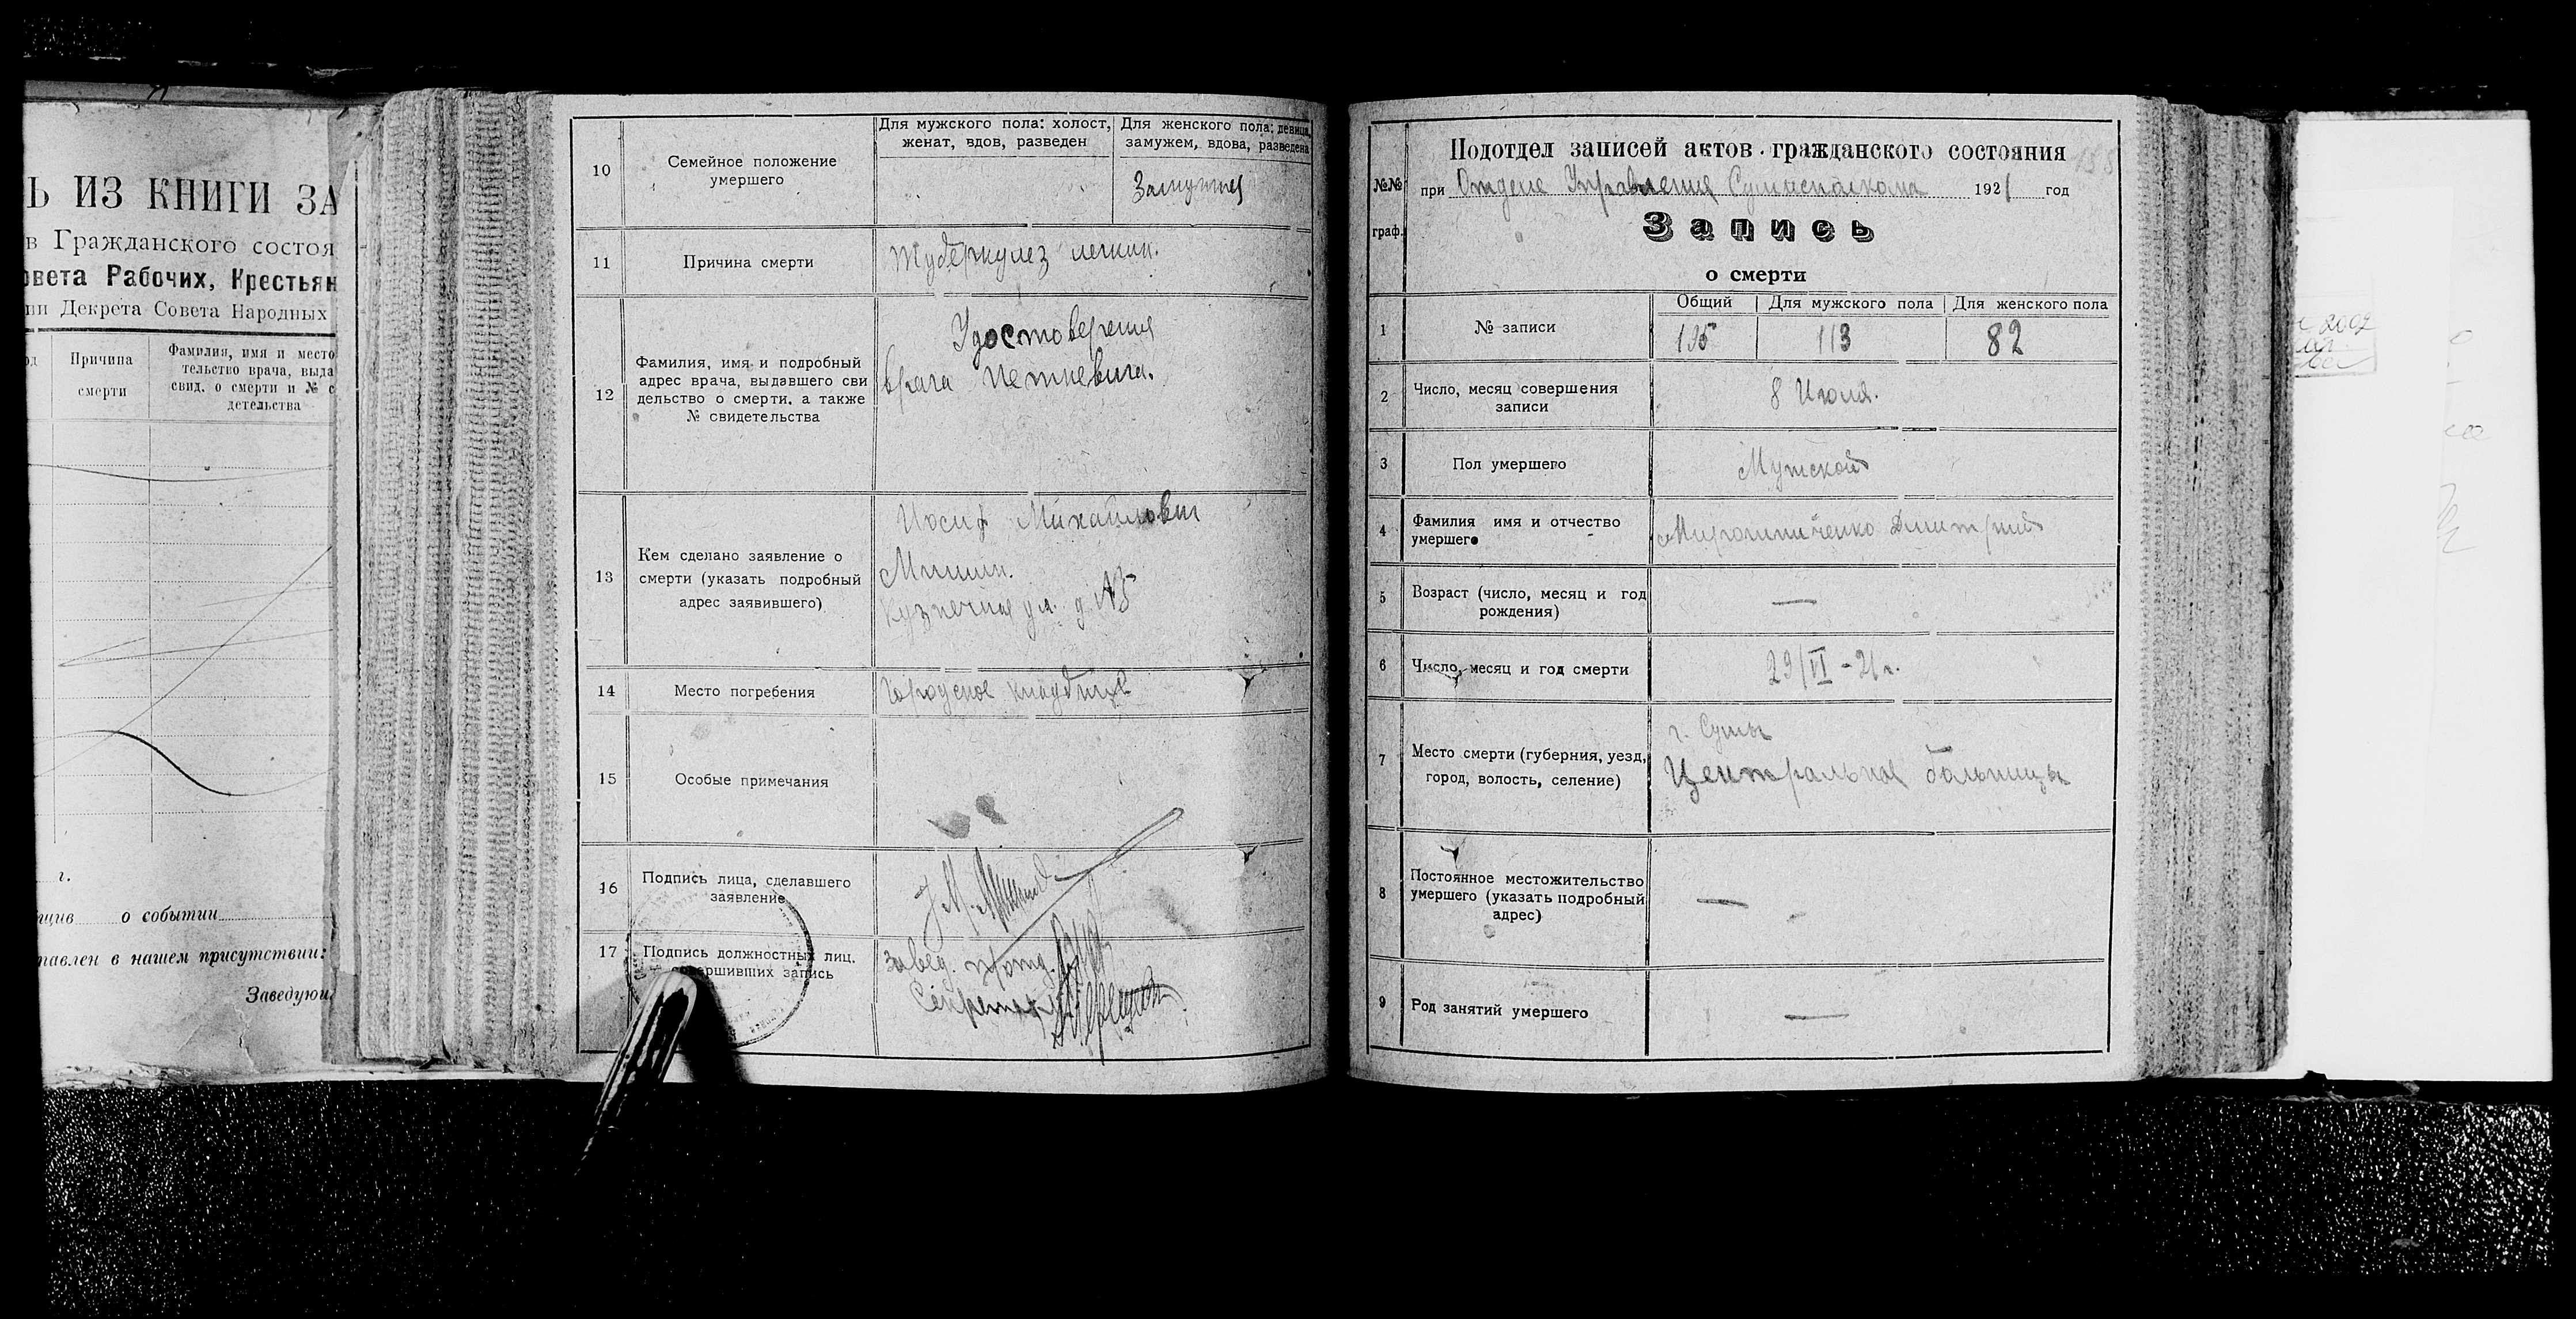 Ь ИЗ КНИГИ ЗА
в Гражданского состоя
овета Рабочих, Крестьян
ии Декрета Совета Народных
Причина
смерти
Фамилия, имя и место
тельство врача, выда
свид. о смерти и № с
детельства
г.
о событии
тавлен в нашем присутствии:
Заведующ
10
Семейное положение
умершего
Для мужского пола: холост,
женат, вдов, разведен
Для женского пола: девица,
замужем, вдова, разведена
Замужняя
11
Причина смерти
Туберкулез легких.
12
Фамилия, имя и подробный
адрес врача, выдавшего сви
дельство о смерти. а также
№ свидетельства
Удостоверения
врача Петкевича.
13
Кем сделано заявление о
смерти (указать подробный
адрес заявившего)
Иосиф Михайлович
Мишин.
Кузнечная ул. д. №5
14
Место погребения
Городское кладбище
15
Особые примечания
16
Подпись лица, сделавшего
заявление
17
Подпись должностных лиц.
совершивших запись
Завед. п/отд.
Секретарь
№№
граф.
Подотдел записей актов гражданского состояния
при Отделе Управления Сумисполкома 1921 год
Запись
о смерти
1
№ записи
Общий
Для мужского пола
Для женского пола
195
113
82
2
Число, месяц совершения
записи
8 Июля.
3
Пол умершего
Мужской
4
Фамилия имя и отчество
умершего
Мирошниченко Дмитрий
5
Возраст (число, месяц и год
рождения)
—
6
Число, месяц и год смерти
29/VI - 21 г.
7
Место смерти (губерния, уезд,
город, волость, селение)
г. Сумы
Центральная больница
8
Постоянное местожительство
умершего (указать подробный
адрес)
—
9
Род занятий умершего
—
2002